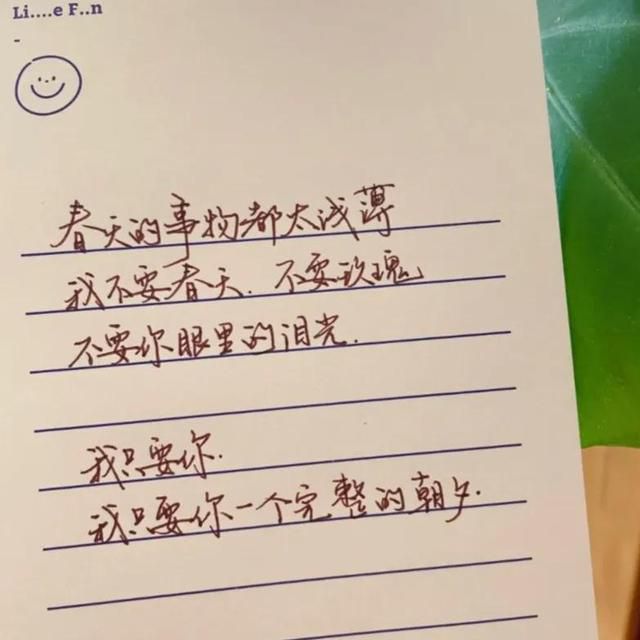 Li....e F..n
-
春天的事物都太浅薄
我不要春天.不要玫瑰
不要你眼里的泪光.
我只要你.
我只要你一个完整的朝夕.